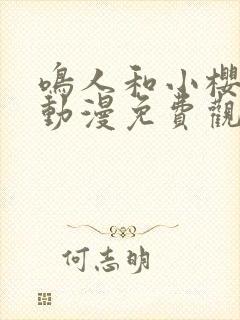 鳴人和小櫻
動漫免費觀
何志明